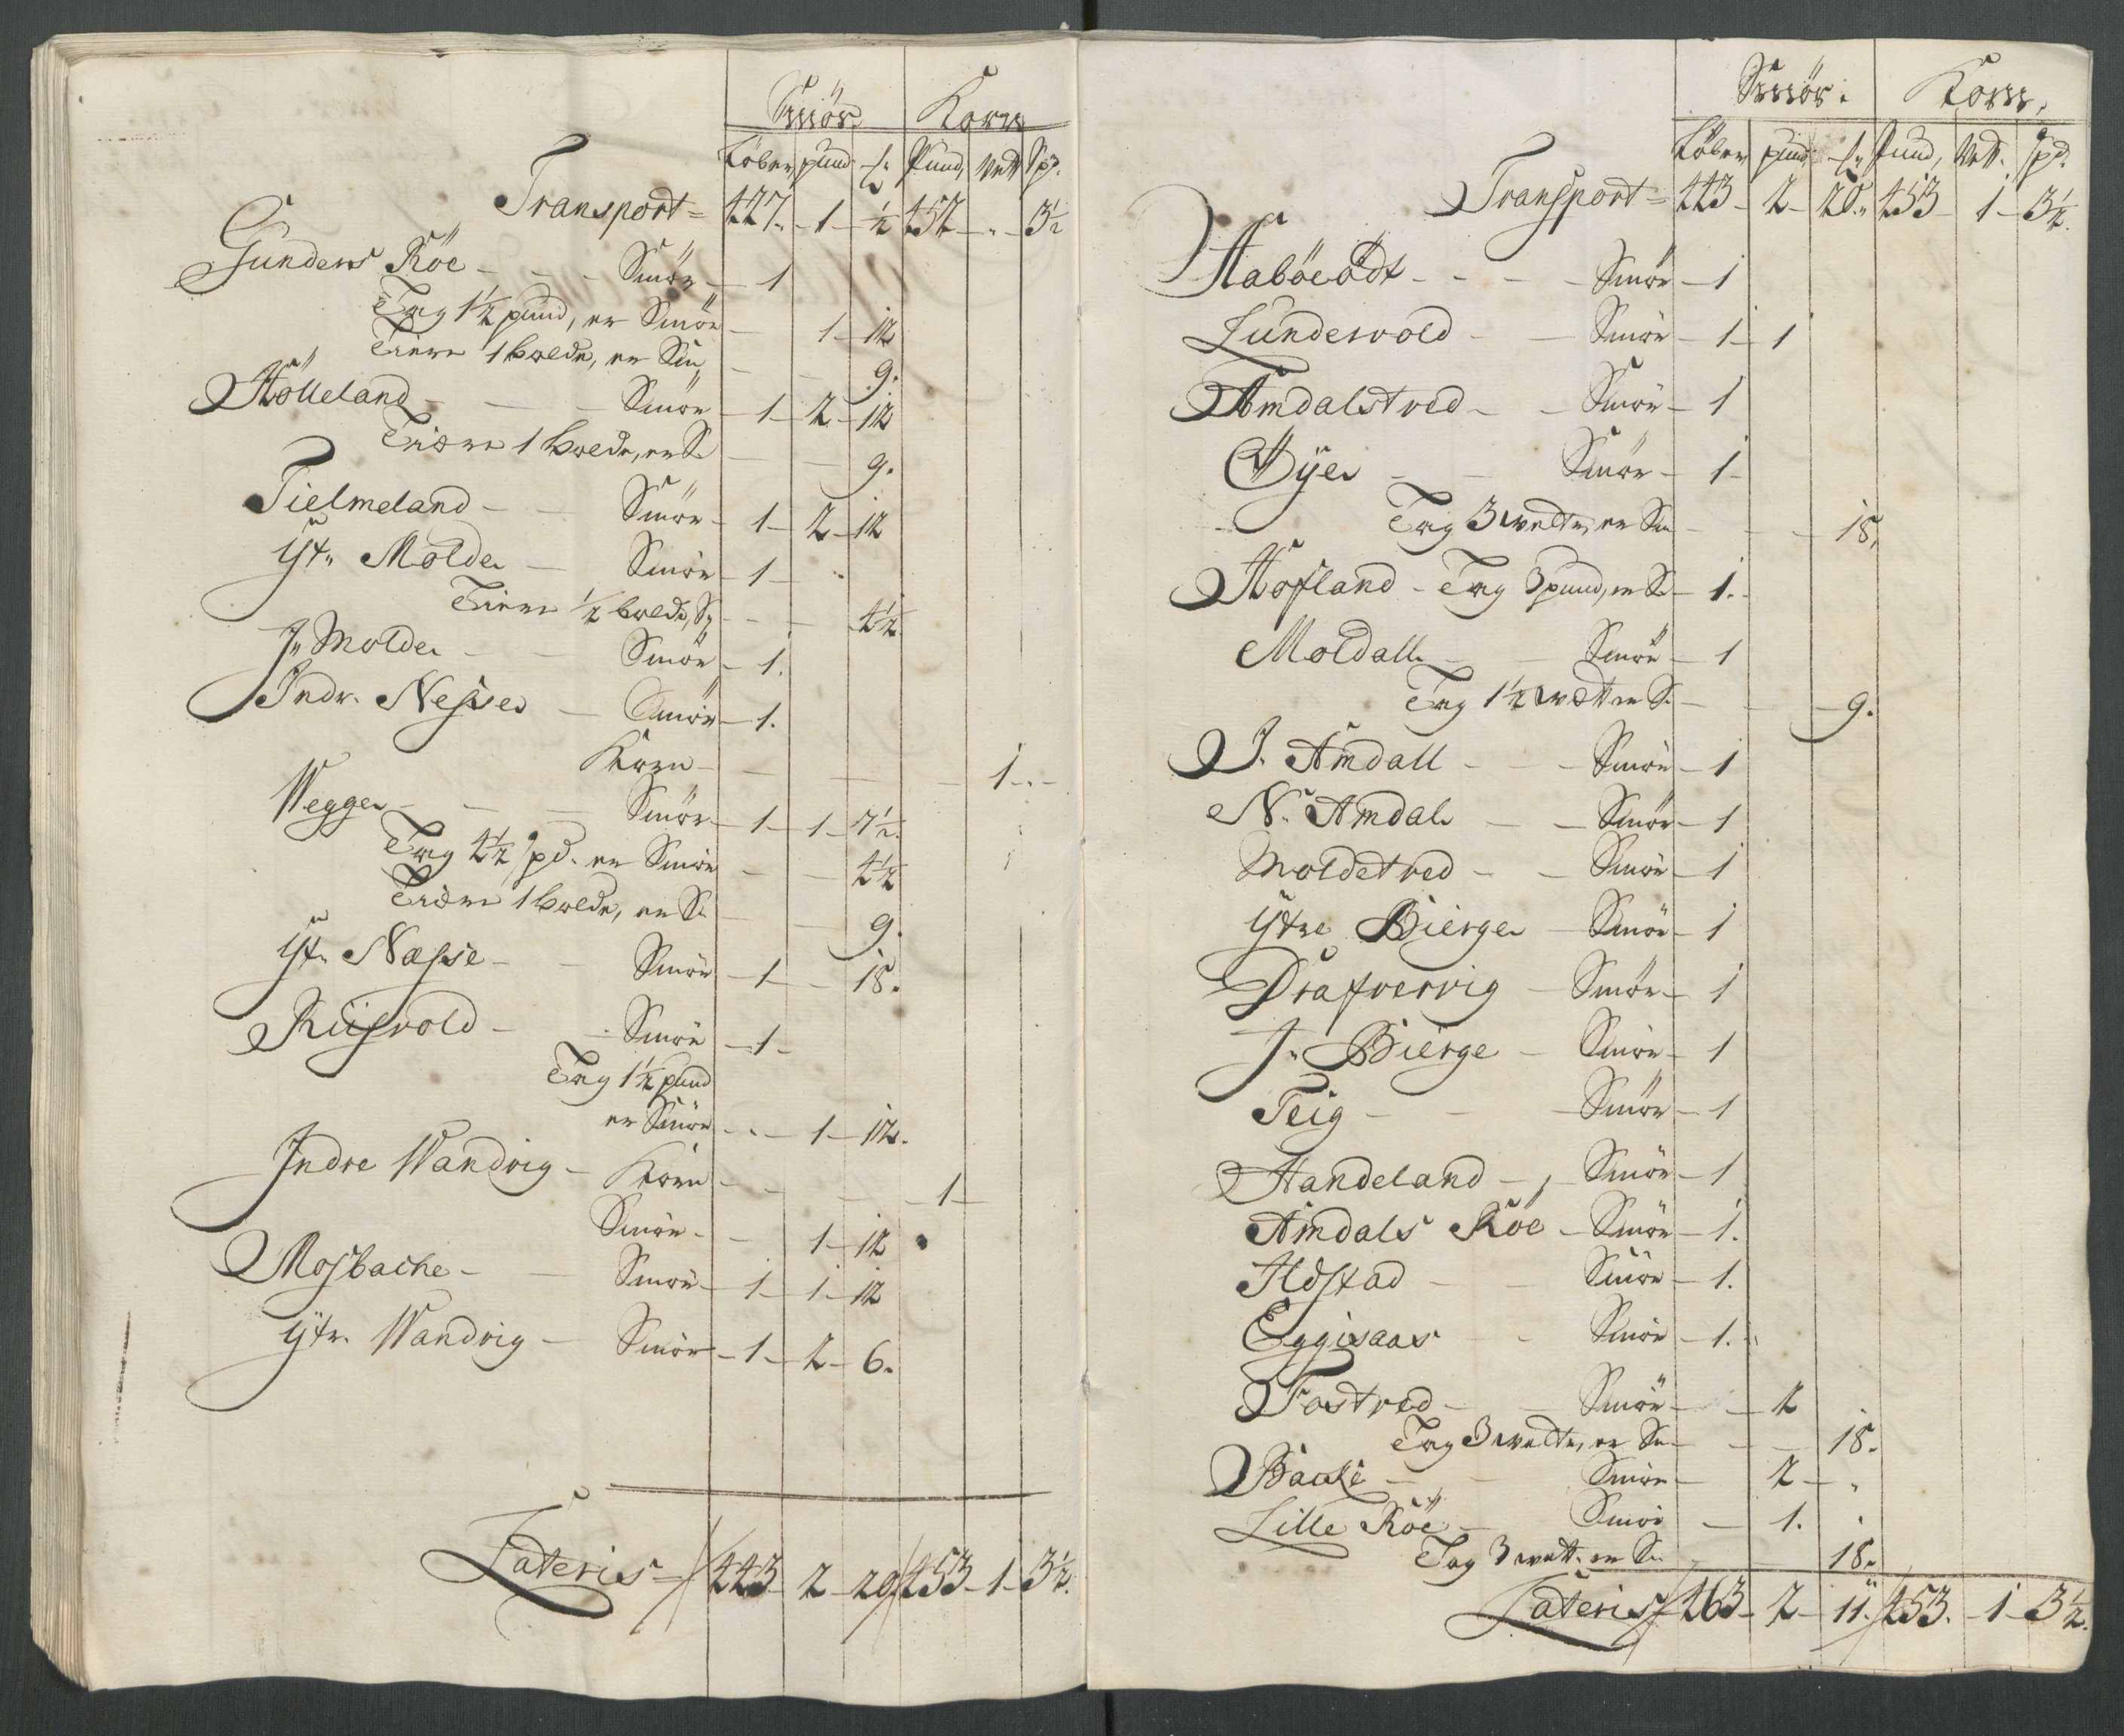 Smör. Korn
Löber pund ℔ Pund, Vett Spd.
Transport = 427. - 1 - ½ 452 - " - 3½
Gunders Röe - - - Smör - 1
Tag 1½ pund, er Smör - 1 - 12
Tiere 1 bolde, er Sm, - - 9.
Hölleland - - - Smör - 1 - 2 - 12
Tiære 1 bolde, er S. - - 9.
Tielmeland - - Smör - 1 - 2 - 12
Ytr. Molde - Smör - 1 - "
Tiere ½ bolde, S. - - 4½
J. Molde - - Smör - 1.
Indr. Nesse - Smör - 1.
Korn - - - - 1 - " -
Wegge - - - Smör - 1 - 1 - 7½.
Tag 4½ spd. er Smör - - 4½
Tiære 1 bolde, er S. - - 9.
Ytr. Næsse - - Smör - 1 - - 18.
Riisvold - - Smör - 1 -
Tag 1½ pund
er Smör - " - 1 - 12.
Indre Wandvig - Korn - - - - 1 -
Smör - - 1 - 12
Mosbache - - Smör - 1 - 1 - 12
Ytr. Wandvig - Smör - 1 - 2 - 6.
Lateris = 443 - 2 - 20 453 - 1 - 3½.
Smör. Korn,
Löber pund ℔ Pund, Vett. spd.
Transport = 443 - 2 - 20. 453 - 1 - 3½.
Haböe Ödt - - - Smör - 1
Lundevold - - Smör - 1 - 1
Amdalstved - - Smör - 1
Øye - - Smör - 1 -
Tag 3 vedte, er Sm - - - 18.
Hofland - Tag 3 pund, er S. - 1. -
Moldall - - Smör - 1
Tag 1½ vætt er S. - - - 9.
J. Amdall - - - Smör - 1
N. Amdal - - Smör - 1
Moldetved - - Smör - 1
Ytre Bierge - Smör - 1
Drafvervig - Smör - 1
J. Bierge - Smör - 1
Teig - - - Smör - 1
Handeland - , - Smör - 1
Amdals Röe - Smör - 1.
Ildstad - - Smör - 1.
Eggisaas - - Smör - 1. "
Tostved - - Smör - - 2
Tag 3 vedte, er Sm - - - 18.
Backe - - Smör - 2 - "
Lille Röe - Smör - 1. .
Tag 3 vett. er Sm. - 18.
Lateris 463 - 2 - 11. 453. - 1 - 3½.